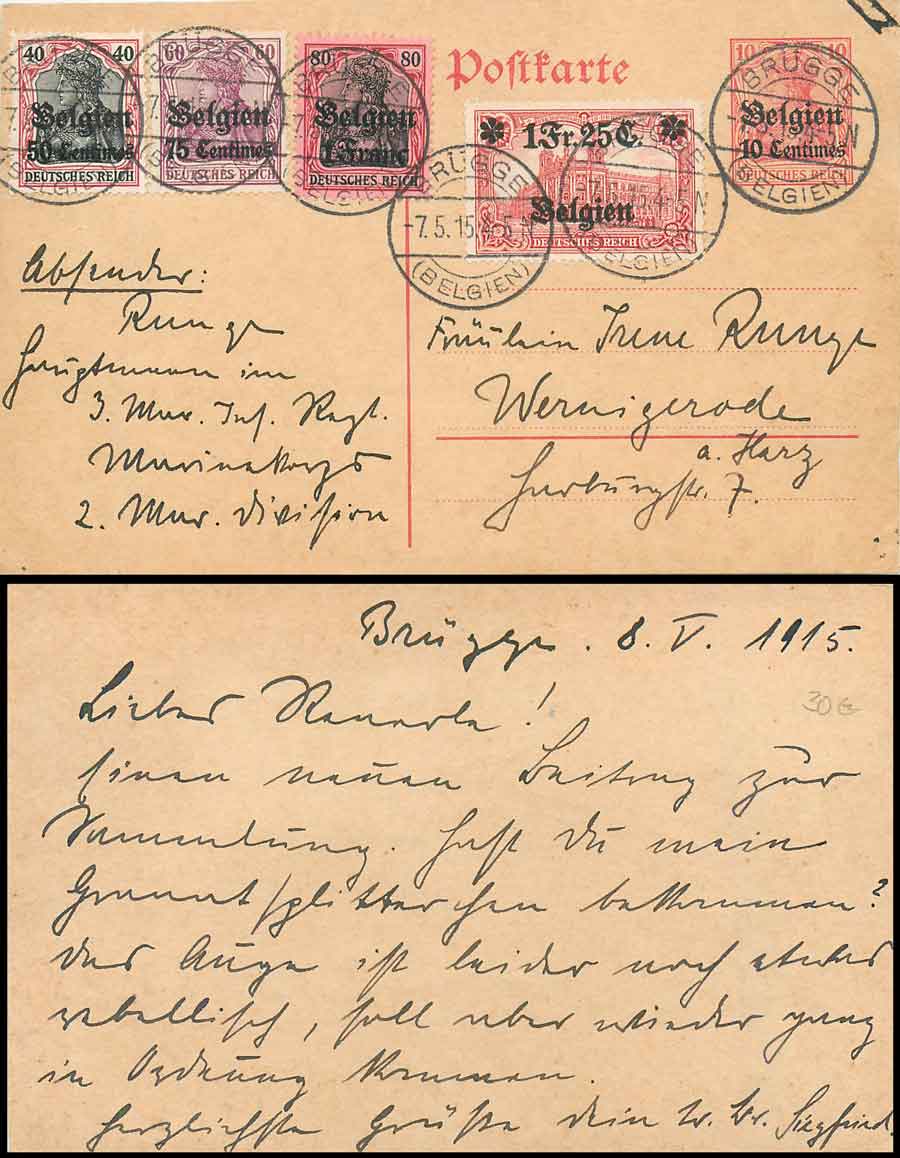 40 40
Belgien
50 Centimes
DEUTSCHES REICH
60 60
Belgien
75 Centimes
DEUTSCHES REICH
80 80
Belgien
1 Franc
DEUTSCHES REICH
Postkarte
1 Fr. 25 C.
Belgien
DEUTSCHES REICH
10 10
Belgien
10 Centimes
DEUTSCHES REICH
BRÜGGE
-7.5.15.4-5 N
(BELGIEN)
Absender:
Runge
Hauptmann im
3. Mar. Inf. Regt.
Marinekorps
2. Mar. Division
Fräulein Irene Runge
Wernigerode
a. Harz
Harburgstr. 7.
Brügge. 8. V. 1915.
30 €
Liebes !
Einen neuen Beitrag zur
Sammlung. Hast Du mein
Granatsplitterchen bekommen?
Das Auge ist leider noch etwas
rebellisch, soll aber wieder ganz
in Ordnung kommen.
Herzlichste Grüße Dein tr. Br. Siegfried.